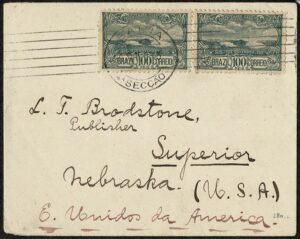 BRAZIL 100 CORREIO BRAZIL 100 CORREIO
SECÇÃO
L. T. Brodstone,
Publisher
Superior
Nebraska. (U. S. A.)
E. Unidos da America.